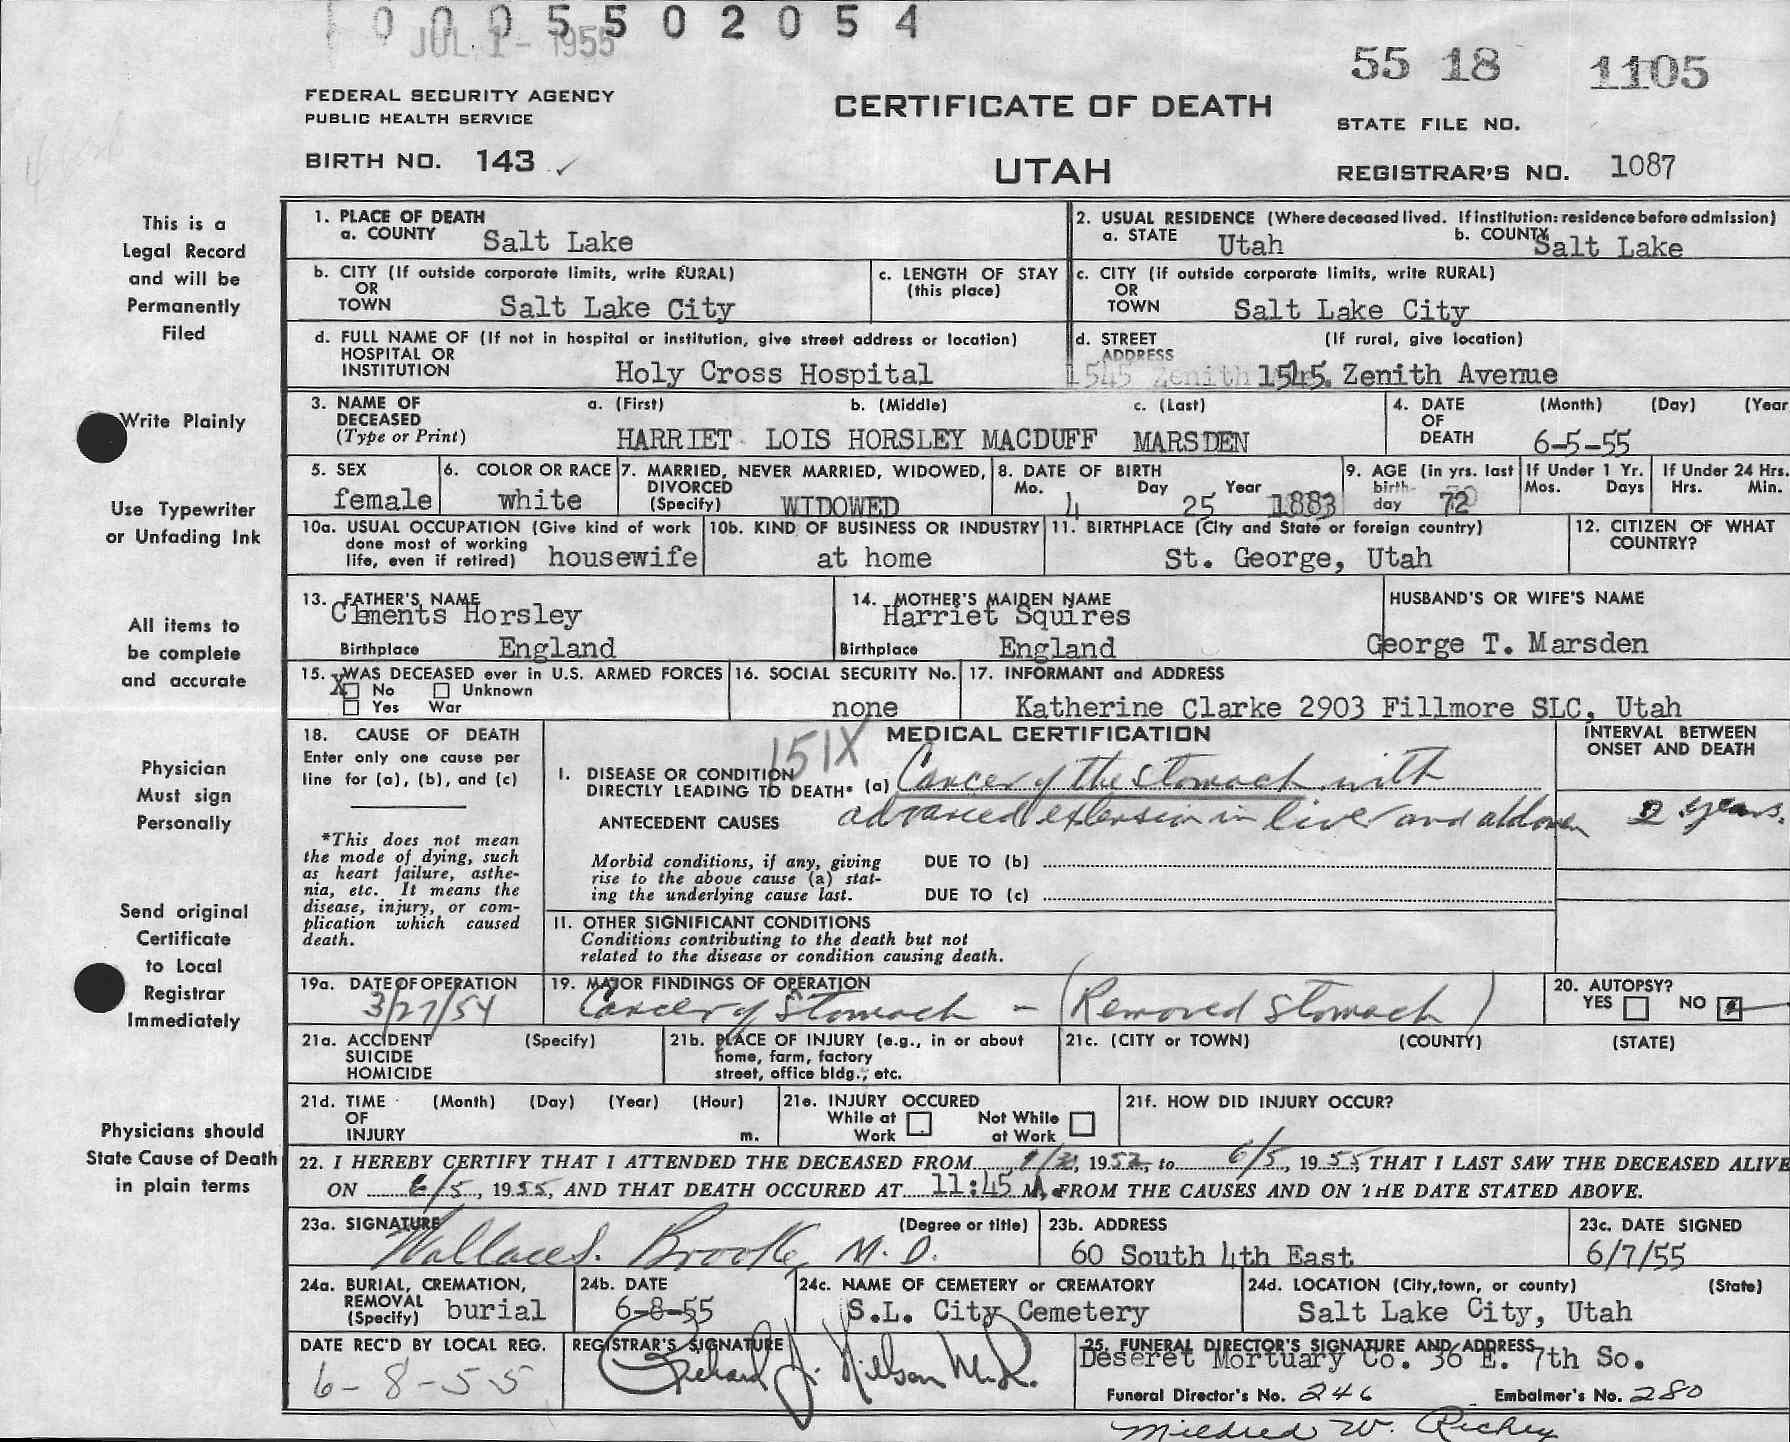 0 0 0 5 5 0 2 0 5 4
JUL 1 - 1955
55 18 1105
FEDERAL SECURITY AGENCY
PUBLIC HEALTH SERVICE
CERTIFICATE OF DEATH
STATE FILE NO.
BIRTH NO. 143 ✓
UTAH
REGISTRAR'S NO. 1087
This is a
Legal Record
and will be
Permanently
Filed
Write Plainly
Use Typewriter
or Unfading Ink
All items to
be complete
and accurate
Physician
Must sign
Personally
Send original
Certificate
to Local
Registrar
Immediately
Physicians should
State Cause of Death
in plain terms
1. PLACE OF DEATH
a. COUNTY Salt Lake
2. USUAL RESIDENCE (Where deceased lived. If institution: residence before admission)
a. STATE Utah b. COUNTY Salt Lake
b. CITY (If outside corporate limits, write RURAL)
OR
TOWN Salt Lake City
c. LENGTH OF STAY
(this place)
c. CITY (if outside corporate limits, write RURAL)
OR
TOWN Salt Lake City
d. FULL NAME OF (If not in hospital or institution, give street address or location)
HOSPITAL OR
INSTITUTION Holy Cross Hospital
d. STREET (If rural, give location)
ADDRESS
1545 Zenith 1545 Zenith Avenue
3. NAME OF a. (First) b. (Middle) c. (Last)
DECEASED
(Type or Print) HARRIET LOIS HORSLEY MACDUFF MARSDEN
4. DATE (Month) (Day) (Year
OF
DEATH 6-5-55
5. SEX
female
6. COLOR OR RACE
white
7. MARRIED, NEVER MARRIED, WIDOWED,
DIVORCED
(Specify) WIDOWED
8. DATE OF BIRTH
Mo. Day Year
4 25 1883
9. AGE (in yrs. last
birth-
day 72
If Under 1 Yr.
Mos. Days
If Under 24 Hrs.
Hrs. Min.
10a. USUAL OCCUPATION (Give kind of work
done most of working
life, even if retired) housewife
10b. KIND OF BUSINESS OR INDUSTRY
at home
11. BIRTHPLACE (City and State or foreign country)
St. George, Utah
12. CITIZEN OF WHAT
COUNTRY?
13. FATHER'S NAME
Clments Horsley
Birthplace England
14. MOTHER'S MAIDEN NAME
Harriet Squires
Birthplace England
HUSBAND'S OR WIFE'S NAME
George T. Marsden
15. WAS DECEASED ever in U.S. ARMED FORCES
X No Unknown
Yes War
16. SOCIAL SECURITY No.
none
17. INFORMANT and ADDRESS
Katherine Clarke 2903 Fillmore SLC, Utah
18. CAUSE OF DEATH
Enter only one cause per
line for (a), (b), and (c)
*This does not mean
the mode of dying, such
as heart failure, asthe-
nia, etc. It means the
disease, injury, or com-
plication which caused
death.
151X MEDICAL CERTIFICATION
INTERVAL BETWEEN
ONSET AND DEATH
I. DISEASE OR CONDITION
DIRECTLY LEADING TO DEATH* (a) Cancer of the stomach with
ANTECEDENT CAUSES advanced extension in liver and abdomen 2 years.
Morbid conditions, if any, giving DUE TO (b)
rise to the above cause (a) stat-
ing the underlying cause last. DUE TO (c)
II. OTHER SIGNIFICANT CONDITIONS
Conditions contributing to the death but not
related to the disease or condition causing death.
19a. DATE OF OPERATION
3/27/54
19. MAJOR FINDINGS OF OPERATION
Cancer of Stomach - (Removed Stomach)
20. AUTOPSY?
YES NO
21a. ACCIDENT (Specify)
SUICIDE
HOMICIDE
21b. PLACE OF INJURY (e.g., in or about
home, farm, factory
street, office bldg., etc.
21c. (CITY or TOWN) (COUNTY) (STATE)
21d. TIME (Month) (Day) (Year) (Hour)
OF
INJURY m.
21e. INJURY OCCURED
While at Not While
Work at Work
21f. HOW DID INJURY OCCUR?
22. I HEREBY CERTIFY THAT I ATTENDED THE DECEASED FROM 1952, to 6/5, 1955, THAT I LAST SAW THE DECEASED ALIVE
ON 6/5, 1955, AND THAT DEATH OCCURED AT 11:45 FROM THE CAUSES AND ON THE DATE STATED ABOVE.
23a. SIGNATURE (Degree or title)
Wallace S. Brooke M. D.
23b. ADDRESS
60 South 4th East
23c. DATE SIGNED
6/7/55
24a. BURIAL, CREMATION,
REMOVAL
(Specify) burial
24b. DATE
6-8-55
24c. NAME OF CEMETERY or CREMATORY
S.L. City Cemetery
24d. LOCATION (City, town, or county) (State)
Salt Lake City, Utah
DATE REC'D BY LOCAL REG.
6-8-55
REGISTRAR'S SIGNATURE
Richard J. Nilson M.D.
25. FUNERAL DIRECTOR'S SIGNATURE AND ADDRESS
Deseret Mortuary Co. 36 E. 7th So.
Funeral Director's No. 246 Embalmer's No. 280
Mildred W. Richey